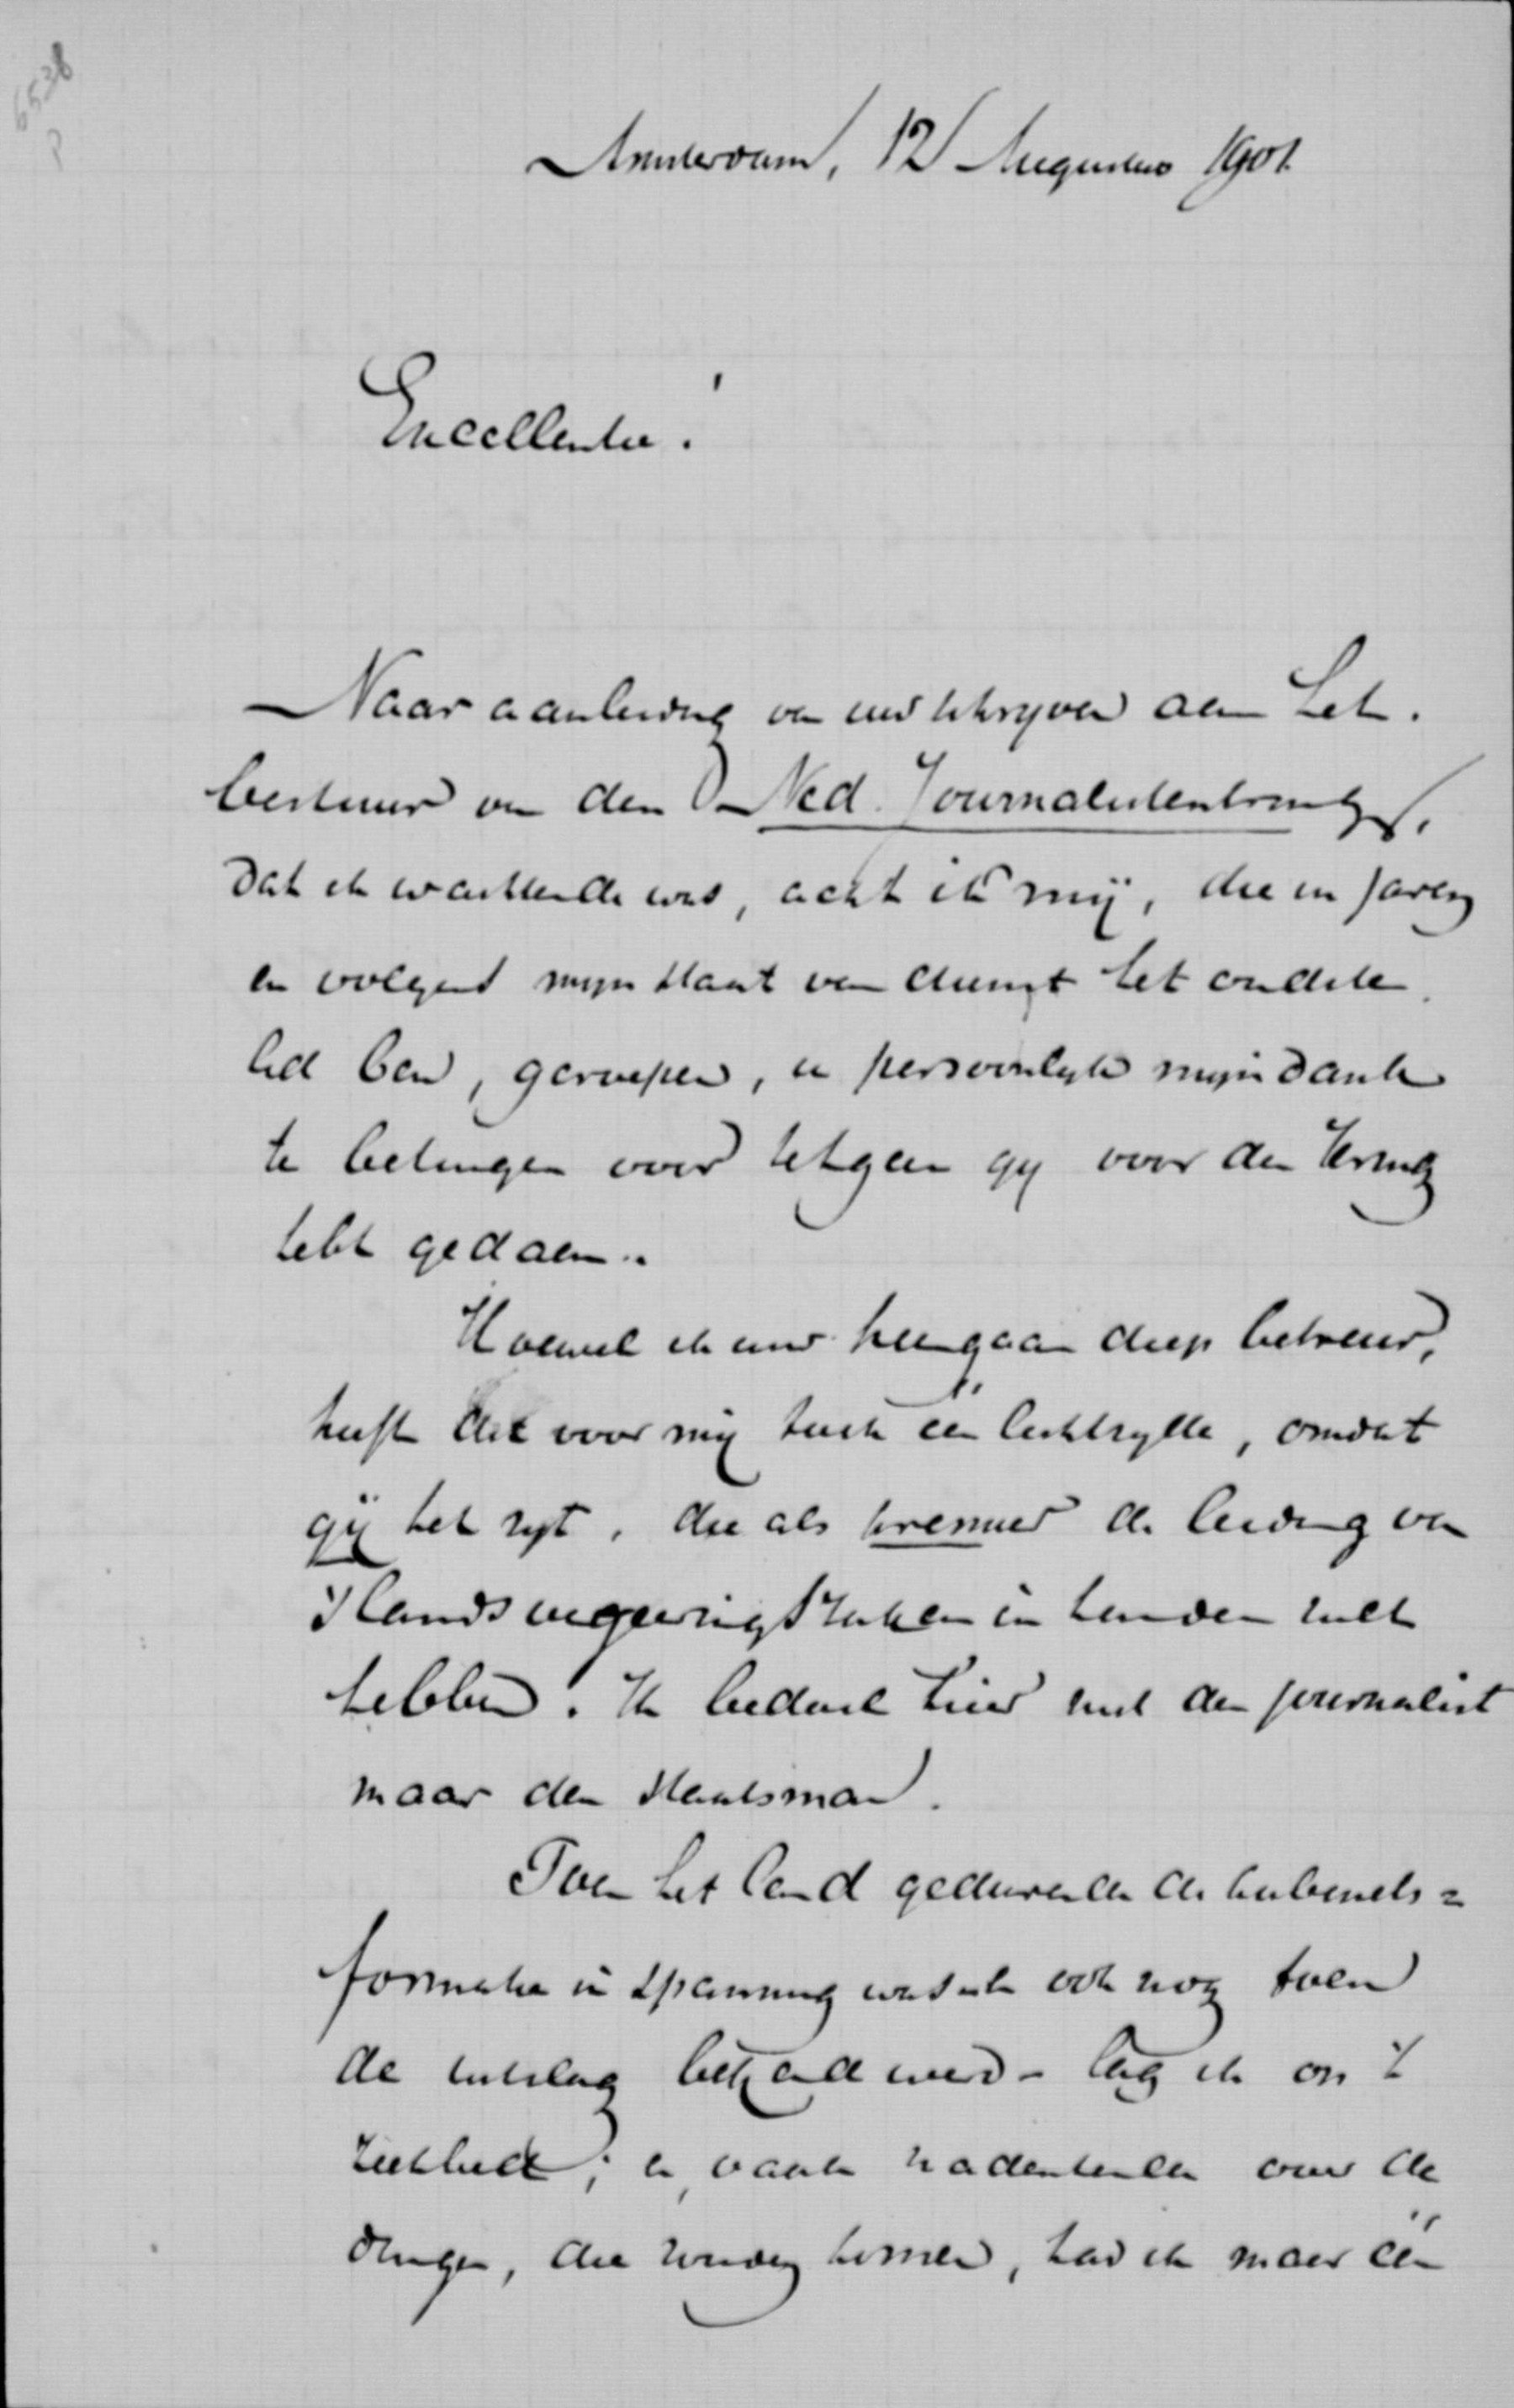 6538
P
Amsterdam, 12 Augustus 1901.
Excellentie!
Naar aanleiding van uw schrijven aan het
bestuur van den Ned. Journalistenkring,
dat ik wachtende was, acht ik mij, die in jaren
en volgens mijn staat van dienst het oudste
lid ben, geroepen, u persoonlijk mijn dank
te betuigen voor hetgeen gij voor den Kring
hebt gedaan.
Hoewel ik uw heengaan diep betreur,
heeft dit voor mij toch één lichtzijde, omdat
gij het zijt, die als premier de leiding van
's lands regeeringszaken in handen zult
hebben. Ik bedoel hier niet den journalist
maar den staatsman.
Toen het land gedurende de kabinets=
formatie in spanning was en ook nog toen
de uitslag bekend werd - lag ik op 't
ziekbed; en vaak nadenkende over de
dingen, die komen, had ik maar één